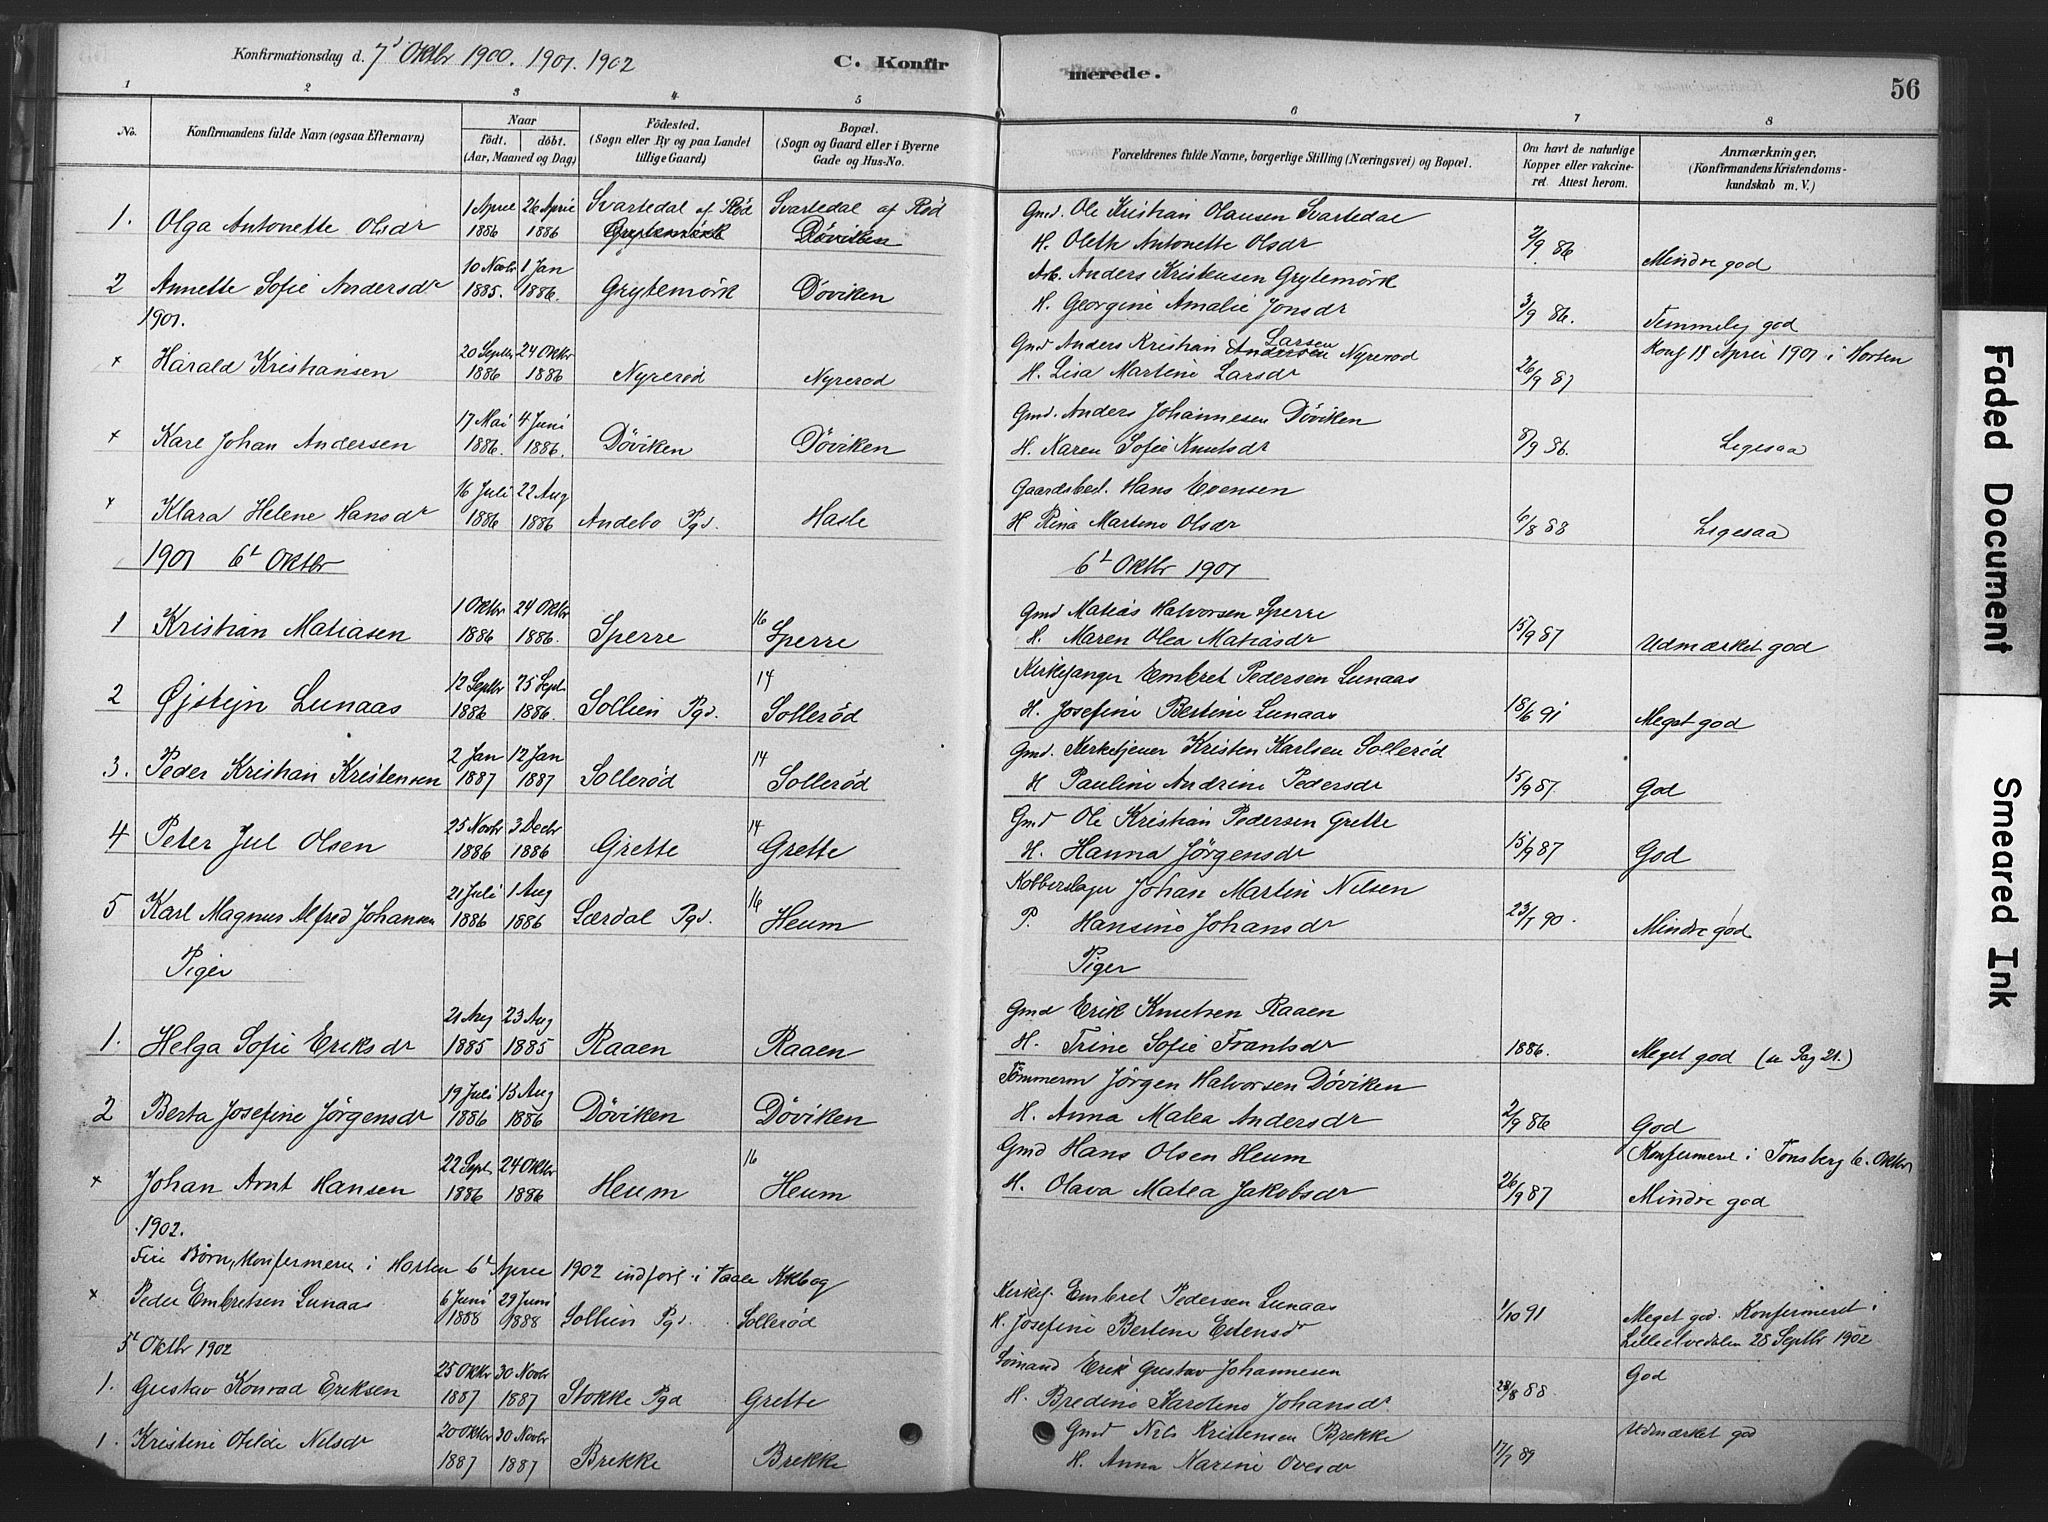 Konfirmationsdag d. 7d Oktbr 1900. 1901. 1902
C. Konfirmerede.
56
1 2 3 4 5 6 7 8
No.
Konfirmandens fulde Navn (ogsaa Efternavn)
Naar
födt. döbt.
(Aar, Maaned og Dag)
Födested.
(Sogn eller By og paa Landet
tillige Gaard)
Bopæl.
(Sogn og Gaard eller i Byerne
Gade og Hus-No.
Forældrenes fulde Navne, borgerlige Stilling (Næringsvei) og Bopæl.
Om havt de naturlige
Kopper eller vakcine-
ret. Attest herom.
Anmærkninger.
(Konfirmandens Kristendoms-
kundskab m. V.)
1 April 26 April Svartedal af Rød Svartedal af Rød Gmd. Ole Kristian Olausen Svartedal
1. Olga Antonette Olsdr 1886 1886 Grytemörk Döviken H. Oleth Antonette Olsdr 2/9 86 Mindre god
10 Novbr 1 Jan Arb. Anders Kristensen Grytemörk
2 Annette Sofie Andersdr 1885. 1886. Grytemörk Döviken H. Georgine Amalie Jonsdr 3/9 86. Temmelig god
1901.
20 Septbr 24 Oktbr Gmd Anders Kristian Andersen Larsen Nyrerod Konf 18 April 1901 i Horten
x Harald Kristiansen 1886 1886 Nyreröd Nyrerod H. Lisa Martine Larsdr 26/9 87
17 Mai 4 Juni Gmd. Anders Johannesen Döviken
x Karl Johan Andersen 1886. 1886. Döviken Döviken H. Karen Sofie Knutsdr 8/9 86. Ligesaa
16 Juli 22 Aug Gaardsbest. Hans Evensen
x Klara Helene Hansdr 1886 1886 Andebo Pgd. Hasle H Rina Martine Olsdr 4/8 88 Ligesaa
1901 6t Oktbr 6t Oktbr 1901
1 Oktbr 24 Oktbr 16 Gmd Matias Halvorsen Sperre
1 Kristian Matiasen 1886 1886. Sperre Sperre H. Maren Olea Matiasdr 15/9 87 Udmærket god
12 Septbr 25 Sept 14 Kirkesanger Embret Pedersen Lunaas
2 Øjstejn Lunaas 1886 1886. Sollien Pgd. Solleröd H. Josefine Bertine Lunaas 18/6 91 Meget god
2 Jan 12 Jan 14 Gmd. Kirketjener Kristen Karlsen Solleröd
3. Peder Kristian Kristensen 1887 1887 Solleröd Solleröd H Pauline Andrine Pedersdr 15/9 87 God
25 Novbr 3 Decbr 14 Gmd Ole Kristian Pedersen Grette
4 Peter Jul Olsen 1886 1886 Grette Grette H. Hanna Jörgensdr 15/9 87 God
21 Juli 1 Aug 16 Kobberslager Johan Martin Nilsen
5 Karl Magnus Alfred Johansen 1886 1886 Lærdal Pgd. Heum P. Hansine Johansdr 23/1 90. Mindre god
Piger Piger
21 Aug 23 Aug Gmd Erik Knutsen Raaen
1. Helga Sofie Eriksdr 1885 1885 Raaen Raaen H. Trine Sofie Frantsdr 1886. Meget god (se Pag 21.)
19 Juli 15 Aug Tömmerm Jörgen Halvorsen Döviken
2 Berta Josefine Jörgensdr 1886 1886 Döviken Döviken H. Anna Matea Andersdr 2/9 86 God
22 Sept 24 Oktbr 16 Gmd Hans Olsen Heum Konfirmeret i Tönsberg 6. Oktbr
x Johan Arnt Hansen 1886 1886 Heum Heum H. Olava Matea Jakobsdr 26/9 87 Mindre god
1902.
Fire Børn, Konfirmeret i Horten 6t April 1902 indfört i Vaale Kkbog
6 Juni 29 Juni Kirkes. Embret Pedersen Lunaas
x Peder Embretsen Lunaas 1888 1888 Sollien Pgd. Solleröd H. Josefine Bertine Estensdr 1/10 91 Meget god. Konfirmeret i
Lilleelvedalen 28 Septbr 1902
5t Oktbr 1902
25 Oktbr 30 Novbr Sömand Erik Gustav Johannesen God
1. Gustav Konrad Eriksen 1887 1887 Stokke Pgd Grette H. Bredine Karoline Johansdr 28/8 88.
20 Oktbr 30 Novbr Gmd Nils Kristensen Brekke Udmærket god
1. Kristine Otilde Nilsdr 1887 1887 Brekke Brekke H. Anna Karine Ovesdr 17/7 89
Faded Document
Smeared Ink